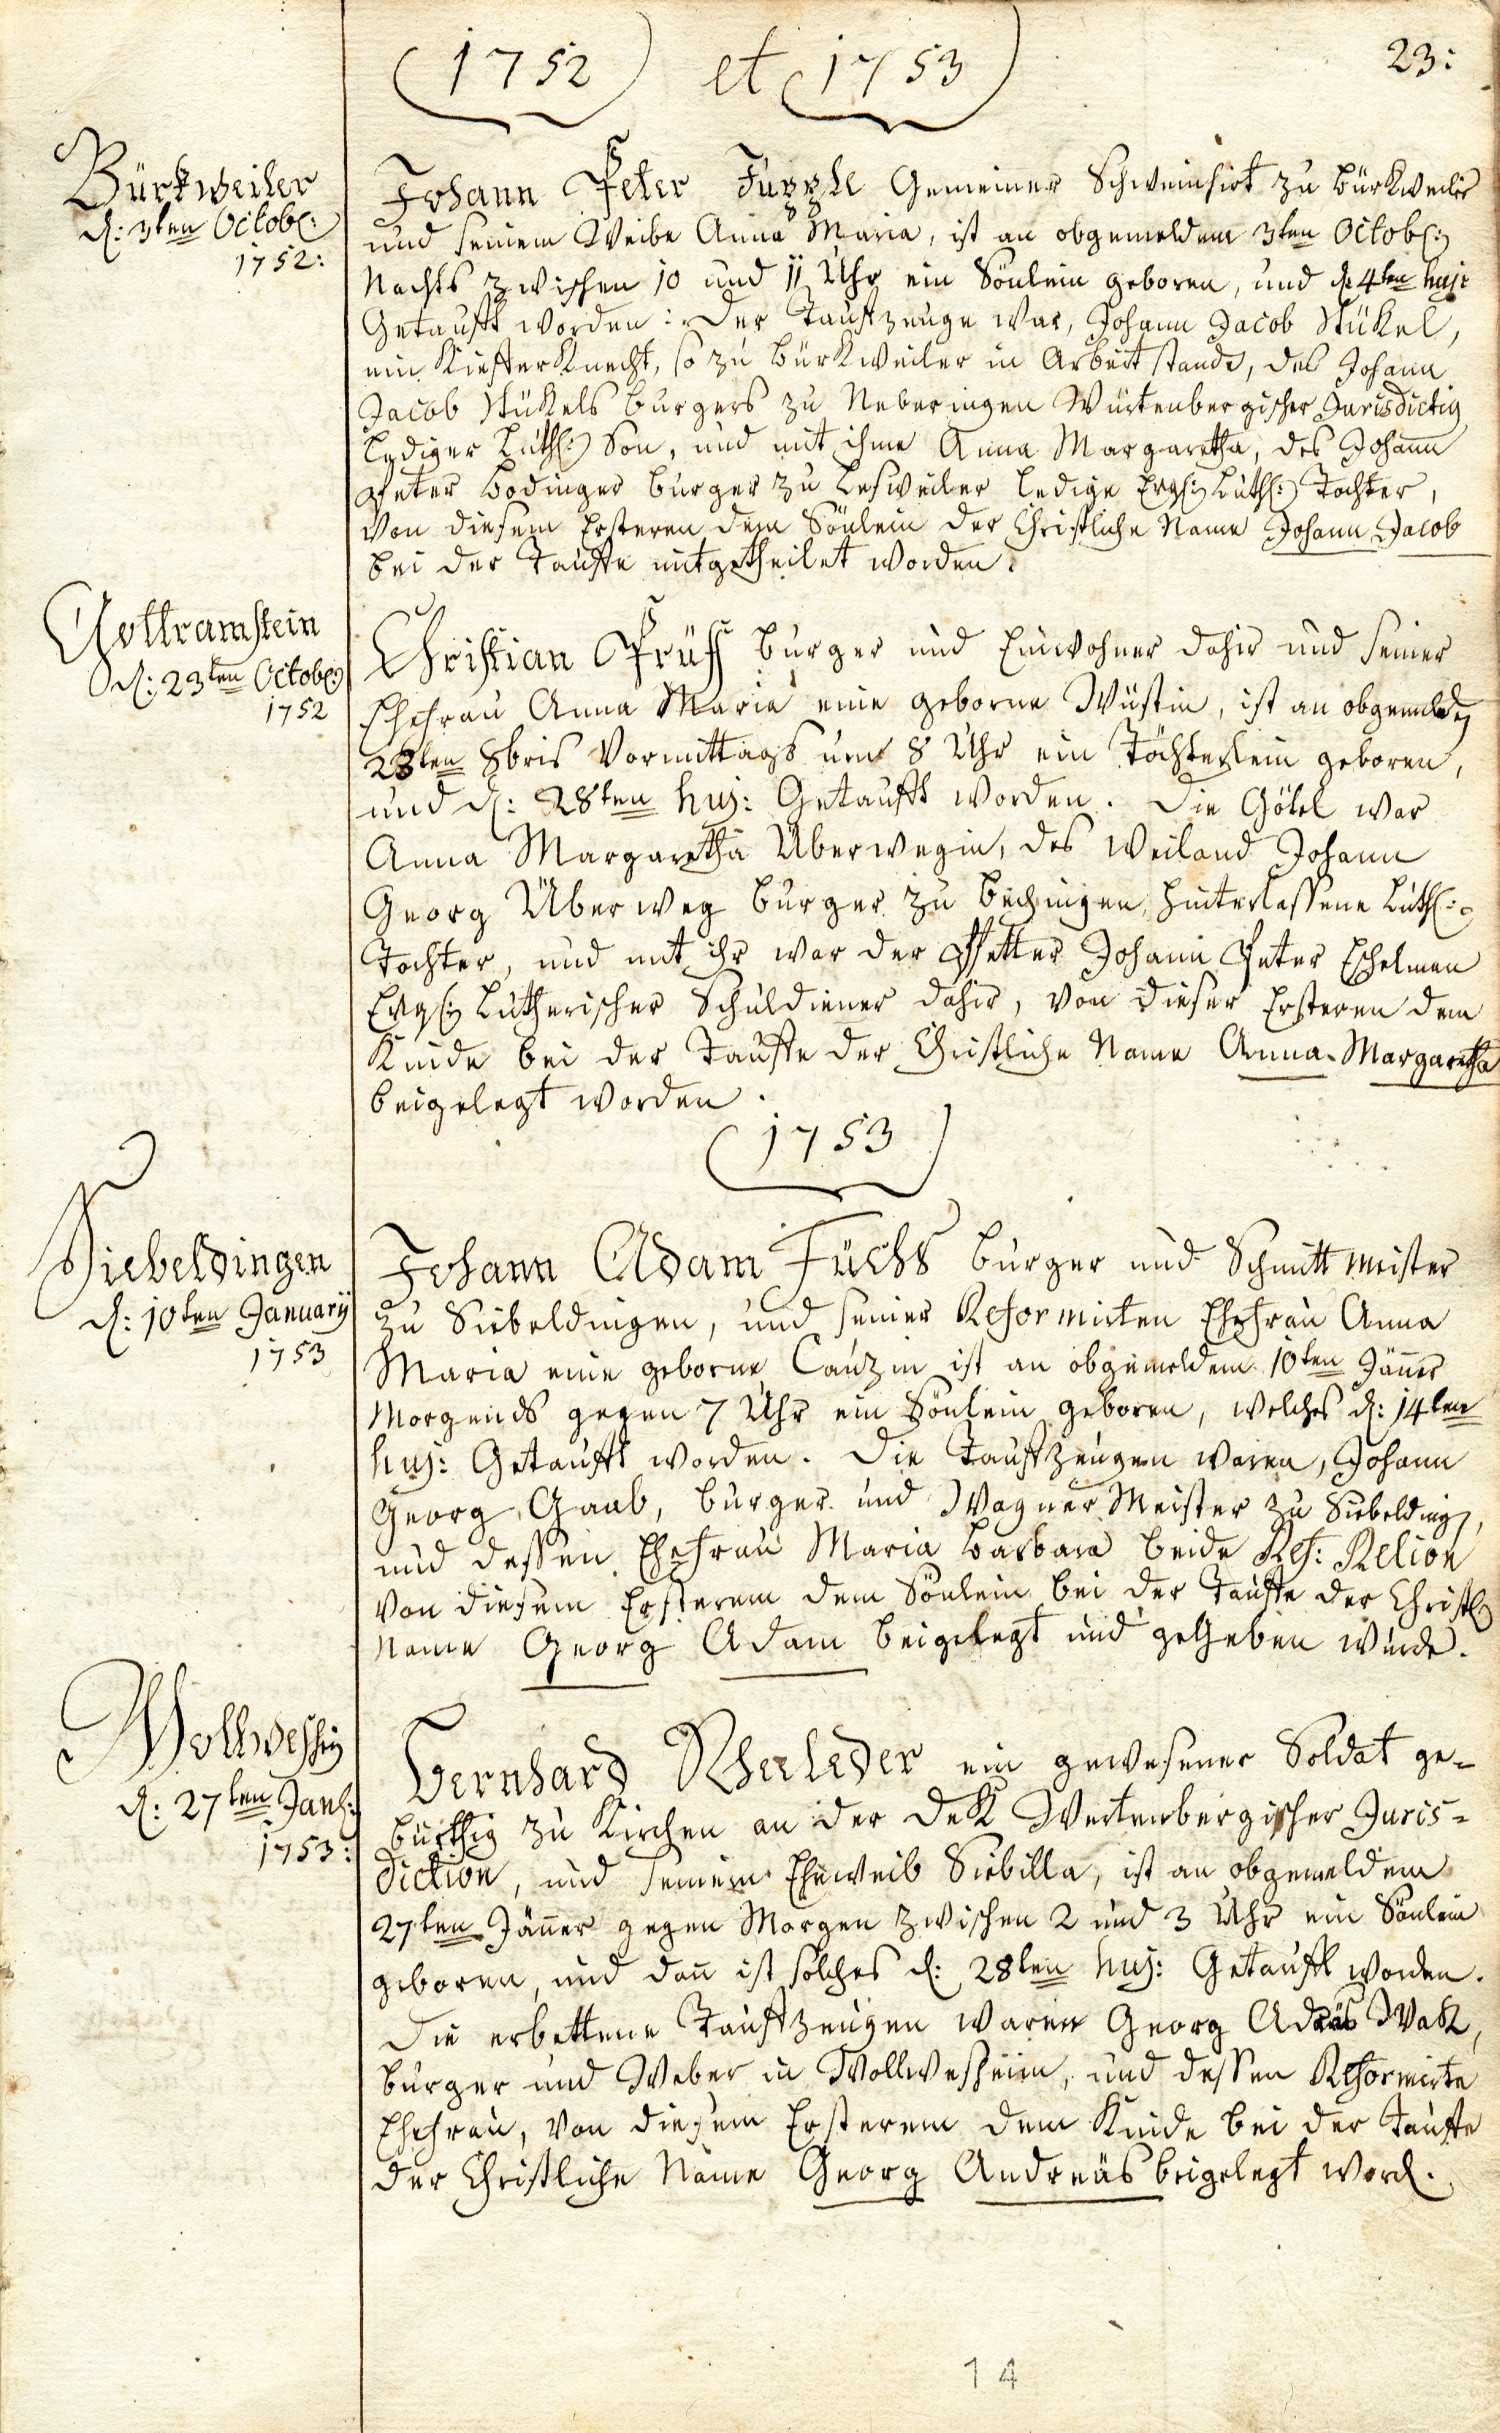 1752 et 1753
23:
Bürkweiler
d: 3ten Octobr:
1752:
Johann Peter Gemeiner Schweinhirt zu Bürkweiler
und seinem Weibe Anna Maria, ist an obgemeldem 3ten Octobr:
Nachts zwischen 10 und 11 Uhr ein Sönlein geboren, und d: 4ten huj:
Getaufft worden: Der Taufzeuge war, Johann Jacob Stükel,
ein Kiefferknecht, so zu Bürkweiler in Arbeit stande, des Johann
Jacob Stükels burgers zu Neberingen Würtenbergischer Jurisdictig
Lediger Luth: Son, und mit ihme Anna Margaretha, des Johann
Peter Bodinger burger zu Lesweiler ledige Evgl: Luth: Tochter,
von diesem Ersteren dem Sönlein der Christliche Name Johann Jacob
bei der Tauffe mitgetheilet worden.
Gottramstein
d: 23ten Octobr:
1752
Christian Prüss burger und Einwohner dahir und seiner
Ehefrau Anna Maria eine geborne Wüstin, ist an obgemelden
23ten 8bris Vormittags um 8 Uhr ein Töchterlein geboren,
und d: 28ten huj: Getaufft worden. Die Götel war
Anna Margaretha Überwegin, des weiland Johann
Georg Überweg burger zu Bechingen hinterlassene Luth:
Tochter, und mit ihr war der Pfetter Johann Peter Eschelman
Evgl: Lutherischer Schuldiener dahir, von dieser Ersteren dem
Kinde bei der Tauffe der Christliche Name Anna Margaretha
beigelegt worden.
1753
Siebeldingen
d: 10ten Januarij
1753
Johann Adam Füchs burger und Schmitt meister
zu Siebeldingen, und seiner Reformirten Ehefrau Anna
Maria eine geborne Cauzin ist an obgemeldem 10ten Jänner
Morgends gegen 7 Uhr ein Sönlein geboren, welches d: 14ten
huj: Getaufft worden. Die Taufzeugen waren, Johann
Georg Gaab, burger und Wagner Meister zu Siebelding,
und dessen Ehefrau Maria Barbara beide Ref: Relion
von diesem Ersterem dem Sönlein bei der Tauffe der Christl:
Name Georg Adam beigelegt und geGeben wurde.
Wollmeshein
d: 27ten Jan:
1753:
Bernhard Rheeleder ein gewesener Soldat ge-
bürthig zu Kirchen an der Dek Wertenbergischer Juris-
diction, und seinem Eheweib Siebilla, ist an obgemeldem
27ten Jänner gegen Morgen zwischen 2 und 3 Uhr ein Sönlein
geboren, und dañ ist solches d: 28ten huj: Getaufft worden.
Die erbettene Taufzeugen waren Georg Adräs Wak,
burger und Weber in Wollmesheim, und dessen Reformirte
Ehefrau, von diesem Ersterem dem Kinde bei der Tauffe
der Christliche Name Georg Andreäs beigelegt word.
14